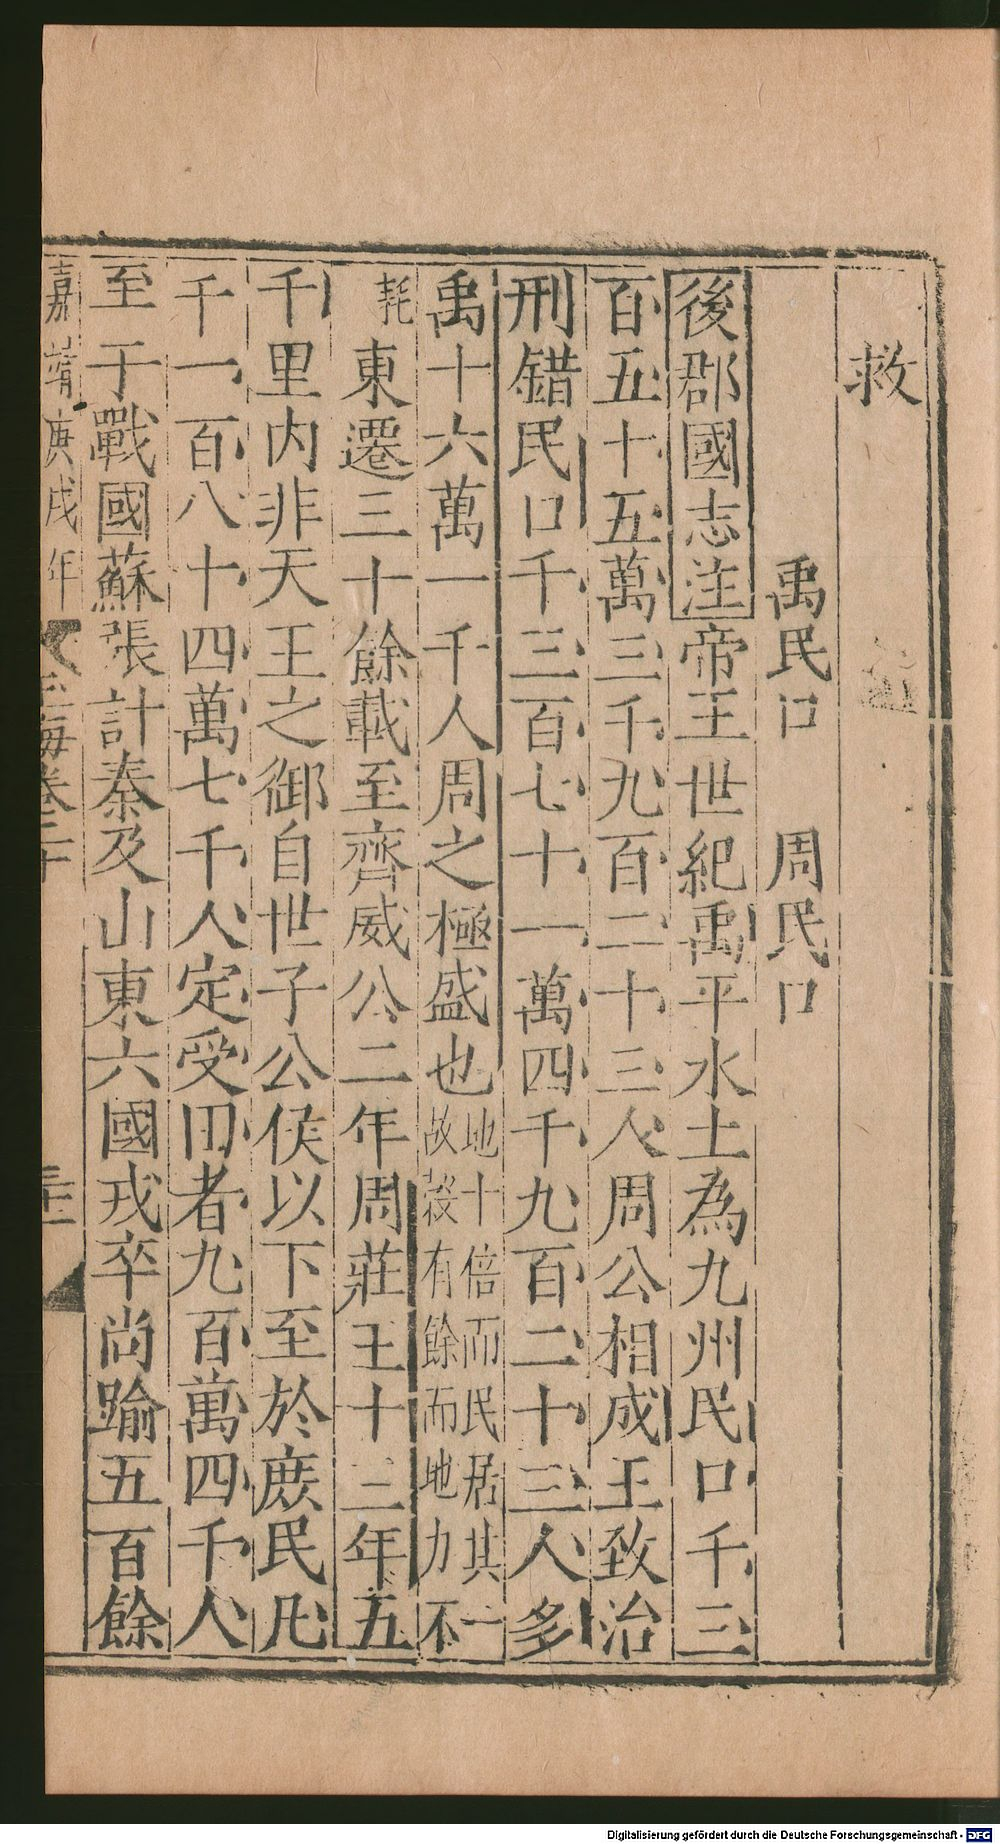 救
禹民口 周民口
後郡國志注帝王世紀禹平水土為九州民口千三
百五十五萬三千九百二十三人周公相成王致治
刑錯民口千三百七十一萬四千九百二十三人多
禹十六萬一千人周之極盛也地十倍而民居其一
故穀有餘而地力不
耗東遷三十餘載至齊威公二年周莊王十三年五
千里内非天王之御自世子公侯以下至於庶民凡
千一百八十四萬七千人定受田者九百萬四千人
至于戰國蘇張計秦及山東六國戎卒尚踰五百餘
嘉靖庚戌年 玉海卷二十
Digitalisierung gefördert durch die Deutsche Forschungsgemeinschaft - DFG